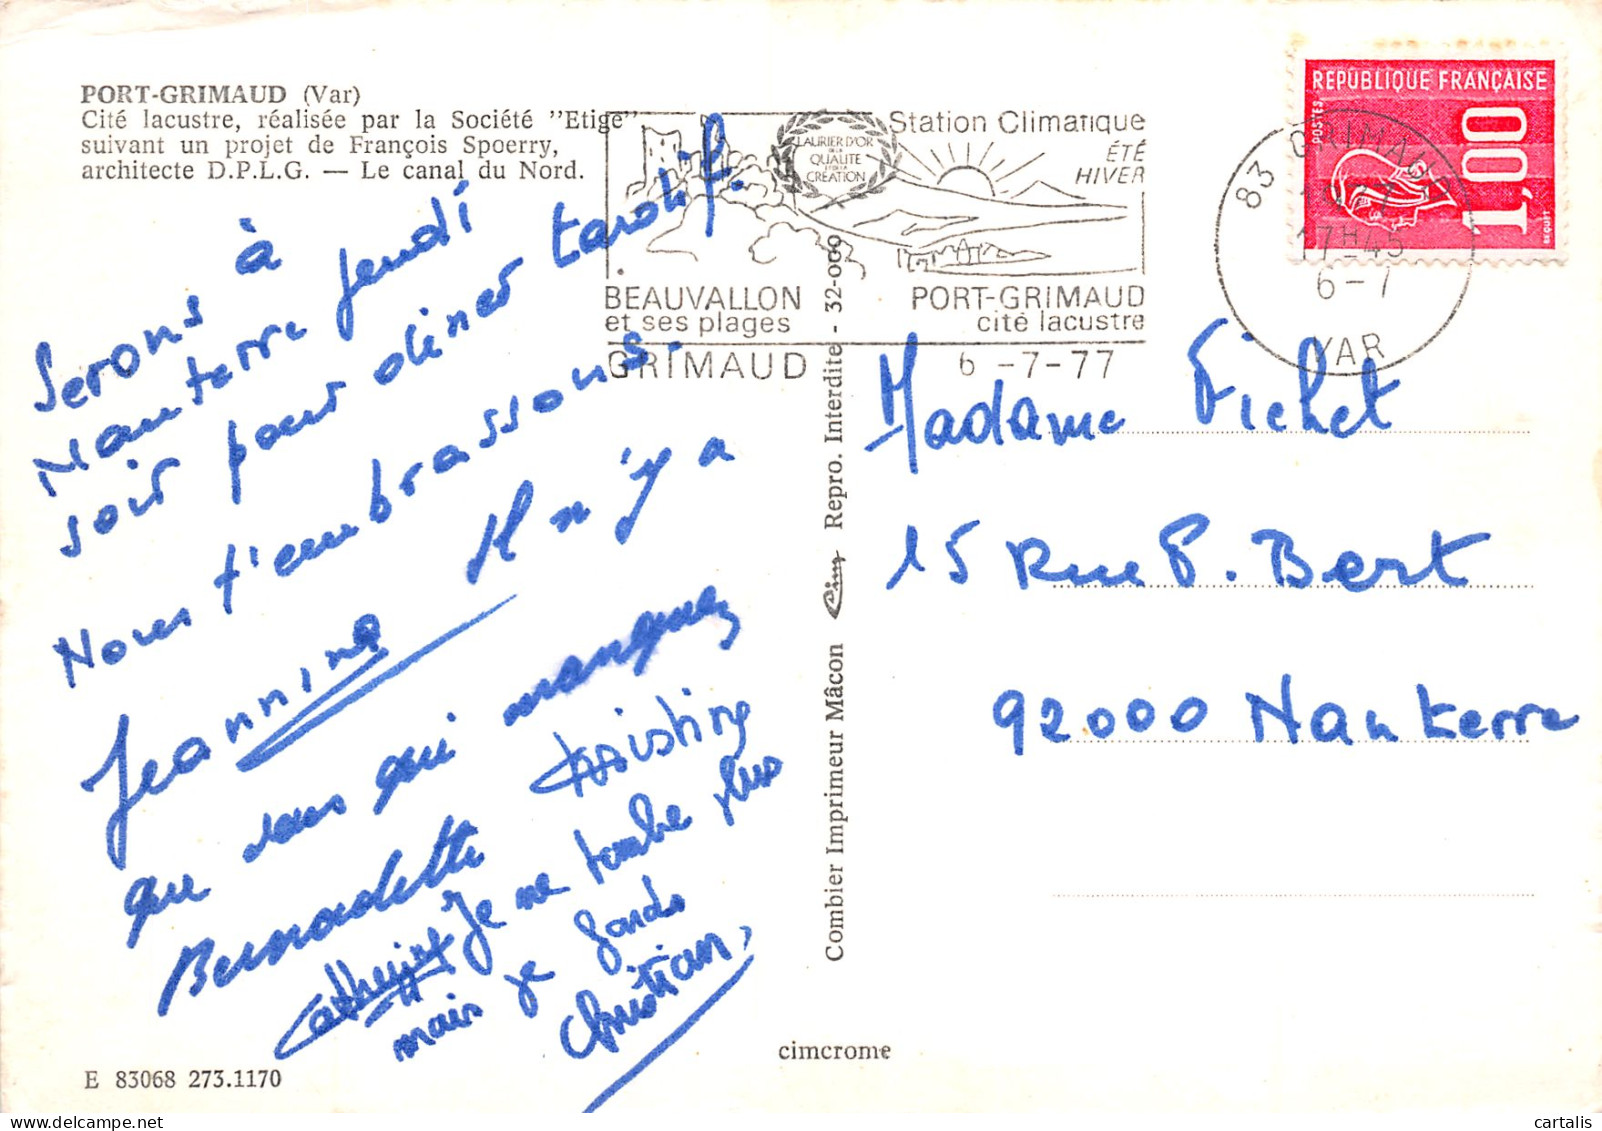 PORT-GRIMAUD (Var)
Cité lacustre, réalisée par la Société "Etige"
suivant un projet de François Spoerry,
architecte D.P.L.G. — Le canal du Nord.
Serons à
Nanterre jeudi
soir pour diner tardif.
Nous t'embrassons.
Jeannine Il n'y a
que vous qui manquez
Bernadette Christine
Catherine Je ne tombe plus
mais je garde
Christian,
E 83068 273.1170
cimcrome
Combier Imprimeur Mâcon Cim Repro. Interdite - 32-000
LAURIER D'OR
DE LA
QUALITE
ET DE LA
CRÉATION
Station Climatique
ÉTÉ
HIVER
BEAUVALLON
et ses plages
PORT-GRIMAUD
cité lacustre
GRIMAUD 6 -7-77
83 GRIMAUD
17H45
6-7
VAR
REPUBLIQUE FRANÇAISE
POSTES
1,00
BEQUET
Madame Fichet
15 Rue P. Bert
92000 Nanterre
www.cartalis.delcampe.net
cartalis